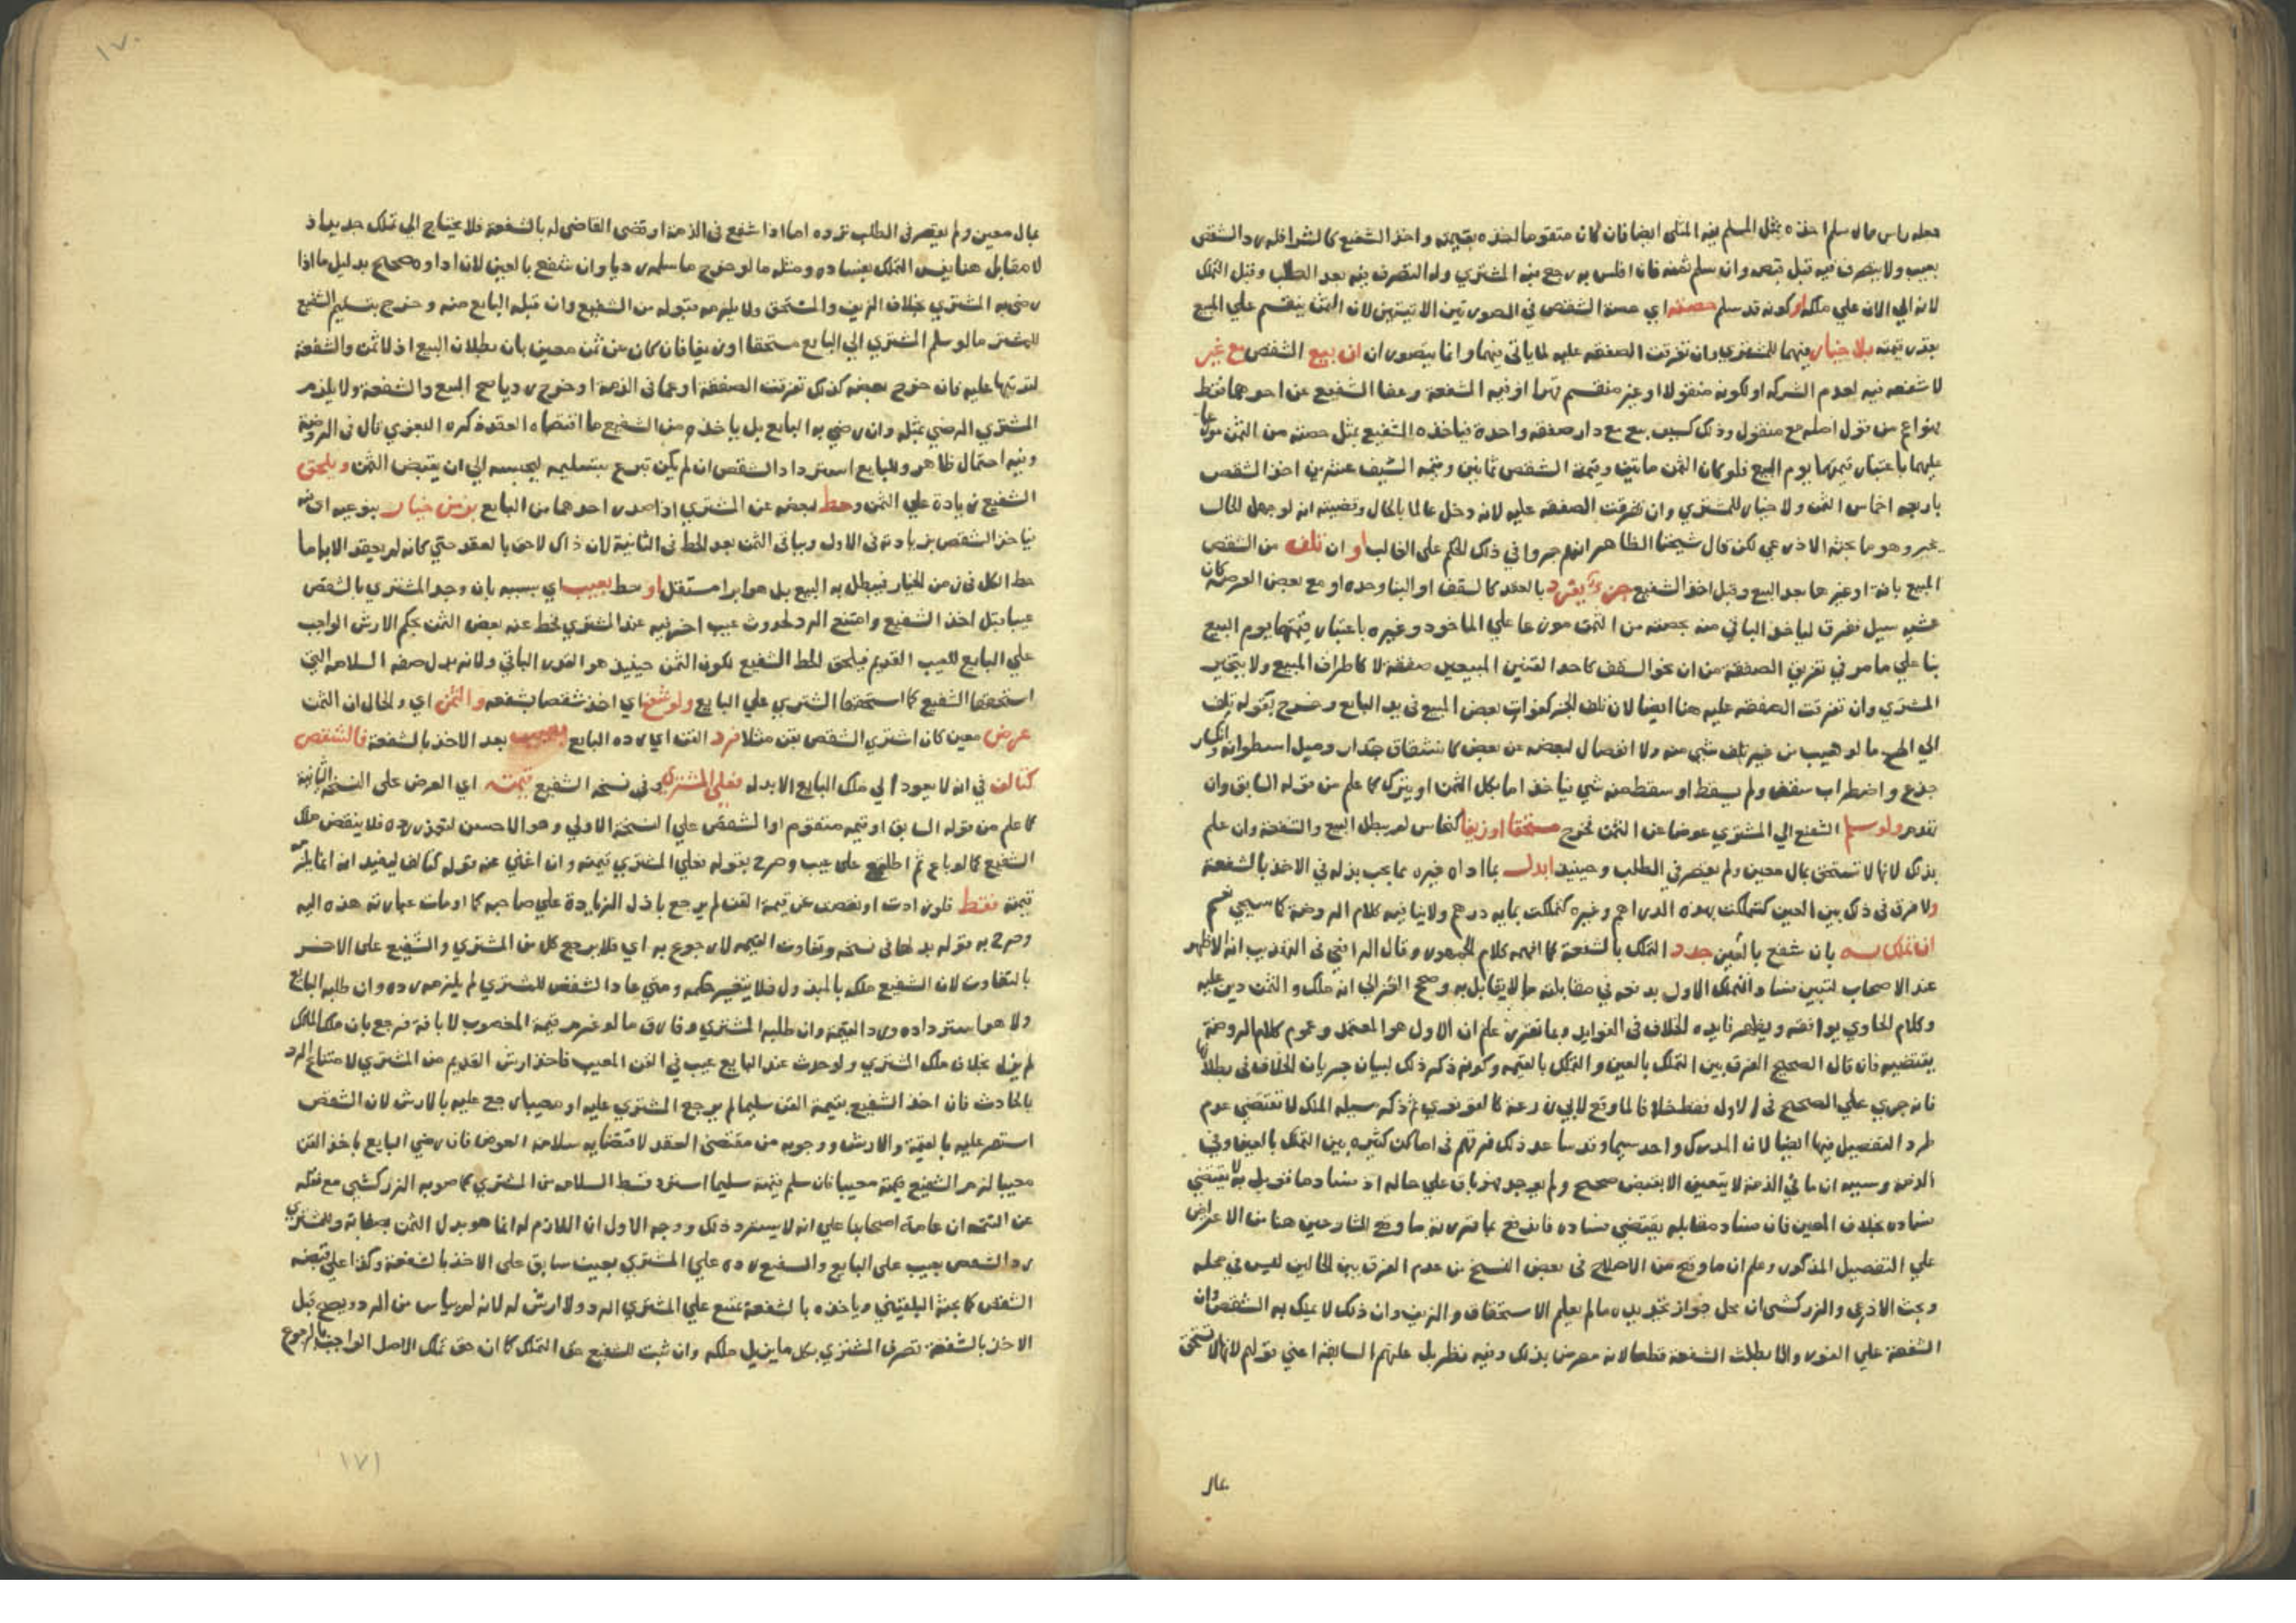 جعله راس مال سلم اخذه بمثل المسلم فيه المثلى ايضا فان كان متقوما اخذه بقيمته واخذ الشفيع كالشرا فله رد الشقص
بعيب ولا يتصرف فيه قبل قبضه وان سلم ثمنه فان افلس به رجع فيه المشتري وله التصرف فيه بعد الطلب وقبل التملك
لانه الي الان علي ملكه او كونه قد سلم حصته اي حصة الشقص في الصورتين الاتيتين لان الثمن ينقسم علي المبيع
بقدر قيمته بلا خيار فيهما للمشتري وان تفرقت الصفقه عليه لما ياتي فيهما وانما يتصوران ان بيع الشقص مع غير
لا شفعه فيه لعدم الشركه او لكونه منقولا او غير منقسم او فيه الشفعة وعفا الشفيع عن احدهما فقط
من منقول وذلك كسيف بيع مع دار صفقه واحدة فياخذه الشفيع بمثل حصته من الثمن موزعا
عليهما باعتبار قيمتهما يوم البيع فلو كان الثمن مايتين وقيمة الشقص ثمانين وقيمه السيف عشرين اخذ الشقص
باربعه اخماس الثمن ولا خيار للمشتري وان تفرقت الصفقه عليه لانه دخل عالما بالحال وقضيته انه لو جهل الحال
يخير وهو ما بحثه الاذرعي لكن قال شيخنا الظاهر انهم جروا في ذلك للحكم على الغالب او ان تلف من الشقص
المبيع بافة او غيرها بعد البيع وقبل اخذ الشفيع جزء يفرد بالعقد كالسقف او البنا وحده او مع بعض العرصة كان
غشيه سيل فغرق لياخذ الباقي منه بحصته من الثمن موزعا علي الماخوذ وغيره باعتبار قيمتهما يوم البيع
بنا علي ما مر في تفريق الصفقة من ان نحو السقف كاحد العينين المبيعين صفقة لا كاطراف المبيع ولا يتخير
المشتري وان تفرقت الصفقه عليه هنا ايضا لان تلف الجزء كفوات بعض المبيع في يد البايع وخرج بقوله تلف
الي اخره ما لو عيب من غير تلف شي منه ولا انفصال لبعضه عن بعض كانشقاق جدار وميل اسطوانه وانكسار
جذع واضطراب سقف ولم يسقط او سقط منه شي فياخذ اما بكل الثمن او يترك كما علم من قوله السابق وان
تقدم ولو سلم الشفيع الي المشتري عوضا عن الثمن فخرج مستحقا او زيفا كنحاس لم يبطل البيع والشفعة وان علم
بذلك لانها لا تستحق بمال معين ولم يقصر في الطلب وحينيذ ابدل بما اداه غيره مما يجب بذله في الاخذ بالشفعة
ولا فرق في ذلك بين العين كتملكت بهذه الدراهم وغيره كتملكت بمايه درهم ولا ينافيه كلام الروضة كما سيجي نعم
ان تملك به بان شفع بالعين جدد التملك بالشفعة كما افهمه كلام الجمهور وقال الرافعي في التذنيب انه الاظهر
عند الاصحاب لتبين فساد التملك الاول بوقوعه في مقابله ما لا يقابل به وصحح الغزالي انه ملك والثمن دين عليه
وكلام الحاوي يوافقه ويظهر فايده الخلاف في الفوايد وبما تقرر علم ان الاول هو المعتمد وعموم كلام الروضة
يقتضيه فانه قال الصحيح الفرق بين التملك بالعين والتملك بالقيمه وكونه ذكر ذلك لبيان جريان الخلاف في بطلانها
فانه جري علي الصحيح في الاول فقط خلافا لما وقع لابي زرعة ثم ذكر سبيله الملك لا تقتضي عدم
طرد التفصيل فيها ايضا لان المدرك واحد سيما وقد ساعد ذلك فرقهم في اماكن كثيره بين التملك بالعين وفي
الذمه وسببه ان ما في الذمة لا يتعين الا بقبض صحيح ولم يوجد فهو باق علي حاله اذ فساد ما قوبل به لا يقتضي
فساده بخلاف المعين فان فساد مقابله يقتضي فساده فاندفع بما قررته ما وقع للشارحين هنا من الاعتراض
علي التفصيل المذكور وعلم ان ما وقع من الاصلاح في بعض النسخ من عدم الفرق بين الحالين ليس في محله
وبحث الاذرعي والزركشي ان محل جواز تجديده ما لم يعلم الاستحقاق والزيف وان ذلك لا يملك به الشقص وان
الشفعة علي الفور والا بطلت الشفعة قطعا لانه معرض بذلك وفيه نظر بل علتهم السابقة اعني قولهم لانها لا تستحق
بمال
١٧٠
بمال معين ولم يقصر في الطلب ترده اما اذا شفع في الذمة او قضى القاضي له بالشفعة فلا يحتاج الي تملك جديد اذ
لا مقابل هنا يفسد التملك بفساده ومثله ما لو خرج ما سلمه رديا وان شفع بالعين لان اداوه صحيح بدليل ما اذا
رضي به المشتري بخلاف الزيف والمستحق ولا يلزمه قبوله من الشفيع وان قبله البايع منه وخرج بتسليم الشفيع
للمشتري ما لو سلم المشتري الي البايع مستحقا او زيفا فان كان عن ثمن معين بان بطلان البيع اذ لا ثمن والشفعة
لترتبها عليه فان خرج بعضه كذلك تفرقت الصفقة او عما في الذمة او خرج رديا صح البيع والشفعة ولا يلزم
المشتري الرضي بمثله وان رضي به البايع بل ياخذه من الشفيع ما اقتضاه العقد ذكره البغوي قال في الروضة
وفيه احتمال ظاهر وللبايع استرداد الشقص ان لم يكن تبرع بتسليمه ليحبسه الي ان يقبض الثمن ويلحق
الشفيع زيادة علي الثمن وحط بعضه عن المشتري اذا صدر احدهما من البايع بزمن خيار بنوعيه
فياخذ الشقص بزيادته في الاول وبباقي الثمن بعد الحط في الثانية لان ذاك لاحق بالعقد حتي كانه لم يعقد الا به اما
حط الكل في زمن الخيار فيبطل به البيع بل هو ابرا مستقل او حط بعيب اي بسببه بان وجد المشتري بالشقص
عيبا قبل اخذ الشفيع وامتنع الرد لحدوث عيب اخر فيه عند المشتري فحط عنه بعض الثمن بحكم الارش الواجب
علي البايع للعيب القديم فيلحق الحط الشفيع لكون الثمن حينيذ هو القدر الباقي ولانه بدل صفه السلامه التي
استحقها الشفيع كما استحقها المشتري علي البايع ولو شفع اي اخذ شقصا بشفعه والثمن اي والحال ان الثمن
عرض معين كان اشتري الشقص بقن مثلا فرد القن اي رده البايع بعيب بعد الاخذ بالشفعة فالشقص
كتالف في انه لا يعود الي ملك البايع الا بدله فعلي المشتري وفي نسخه الشفيع قيمته اي العرض على النسخه الثانية
كما علم من قوله السابق او قيمه متقوم او الشقص علي النسخة الاولي وهو الاحسن لتعذر رده فلا ينقض ملك
الشفيع كما لو باع ثم اطلع على عيب وصرح بقوله فعلي المشتري قيمته وان اغني عنه قوله كتالف ليفيد انه انما يلزمه
قيمته فقط فلو زادت او نقصت عن قيمة القن لم يرجع باذل الزيادة علي صاحبه كما اومات عبارته هذه اليه
وصرح به قوله في نسخه وتفاوت القيمه لا رجوع به اي فلا يرجع كل من المشتري والشفيع على الاخر
بالتفاوت لان الشفيع ملكه بالمبذول فلا يتغير حكمه ومتي عاد الشقص للمشتري لم يلزمه رده وان طلبه البايع
ولا هو استرداده ورد القيمة وان طلبه المشتري وفارق ما لو غرم قيمة المغصوب لاباقه فرجع بان ملك المالك
لم يزل بخلاف ملك المشتري ولو حدث عند البايع عيب في القن المعيب فاخذ ارش القديم من المشتري لامتناع الرد
بالحادث فان اخذ الشفيع بقيمة القن سليما لم يرجع المشتري عليه او معيبا رجع عليه بالارش لان الشقص
استقر عليه بالقيمة والارش ووجوبه من مقتضى العقد لاقتضايه سلامة العوض فان رضي البايع باخذ القن
معيبا لزم الشفيع قيمته معيبا فان سلم قيمته سليما استرد قسط السلامه من المشتري كما صوبه الزركشي مع نقله
عن التتمه ان عامة اصحابنا علي انه لا يسترد ذلك ووجه الاول ان اللازم له انما هو بدل الثمن بصفاته وللمشتري
رد الشقص بعيب علي البايع والشفيع رده علي المشتري بعيب سابق على الاخذ بالشفعة وكذا على قبضه
الشقص كما بحثه البلقيني وياخذه بالشفعة يمتنع علي المشتري الرد ولا ارش له لانه لم يياس من الرد ويصح قبل
الاخذ بالشفعة تصرف المشتري بكل ما يزيل ملكه وان ثبت للشفيع حق التملك كما ان حق تملك الاصل الواجب بالرجوع
١٧١